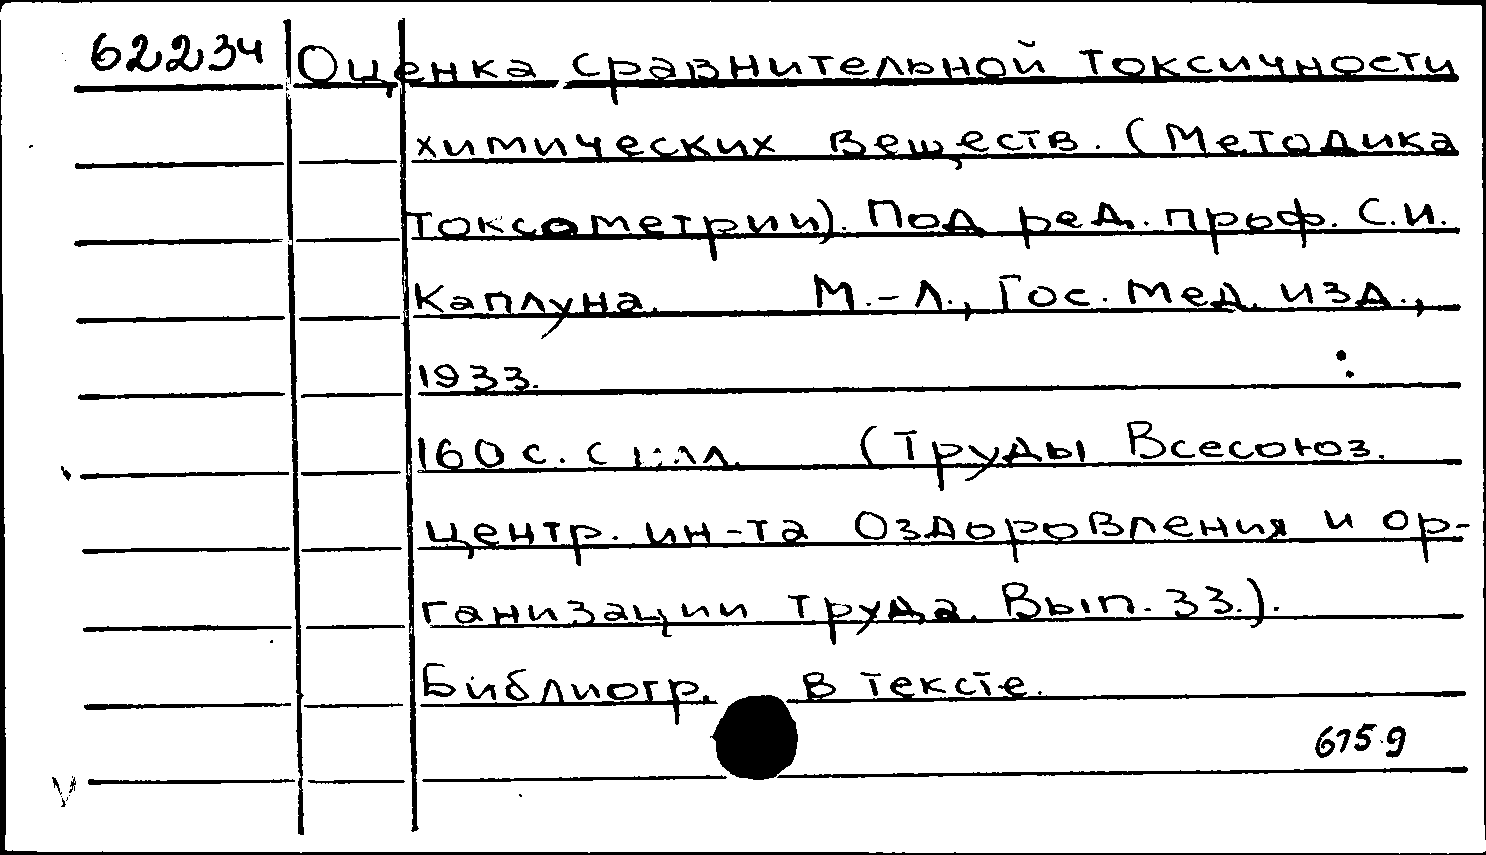 62234 Оценка сравнительной токсичности
химических веществ. (Методика
токсометрии). Под ред. проф. С.И.
Каплуна. М.-Л., Гос. мед. изд.,
1933.
160 с. с илл. (Труды Всесоюз.
центр. ин-та Оздоровления и ор-
ганизации труда. Вып. 33.).
Библиогр. в тексте.
6759